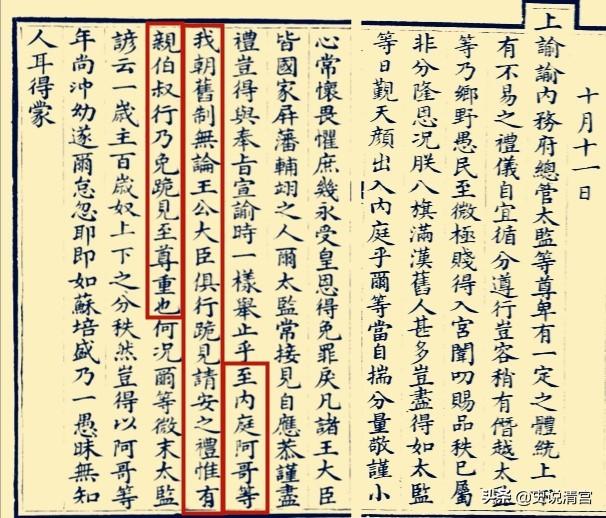 十月十一日
上諭諭內務府總管太監等尊卑有一定之體統上下
有不易之禮儀自宜循分遵行豈容稍有僭越太監
等乃鄉野愚民至微極賤得入宮闈叨賜品秩已屬
非分隆恩况朕八旗滿漢舊人甚多豈盡得如太監
等日覲天顏出入內庭乎爾等當自揣分量敬謹小
心常懷畏懼庶幾永受皇恩得免罪戾凡諸王大臣
皆國家屏藩輔翊之人爾太監常接見自應恭謹盡
禮豈得與奉旨宣諭時一樣舉止乎至內庭阿哥等
我朝舊制無論王公大臣俱行跪見請安之禮惟有
親伯叔行乃免跪見至尊重也何况爾等微末太監
諺云一歲主百歲奴上下之分秩然豈得以阿哥等
年尚沖幼遂爾怠忽耶即如蘇培盛乃一愚昧無知
人耳得蒙
头条 @史说清宫